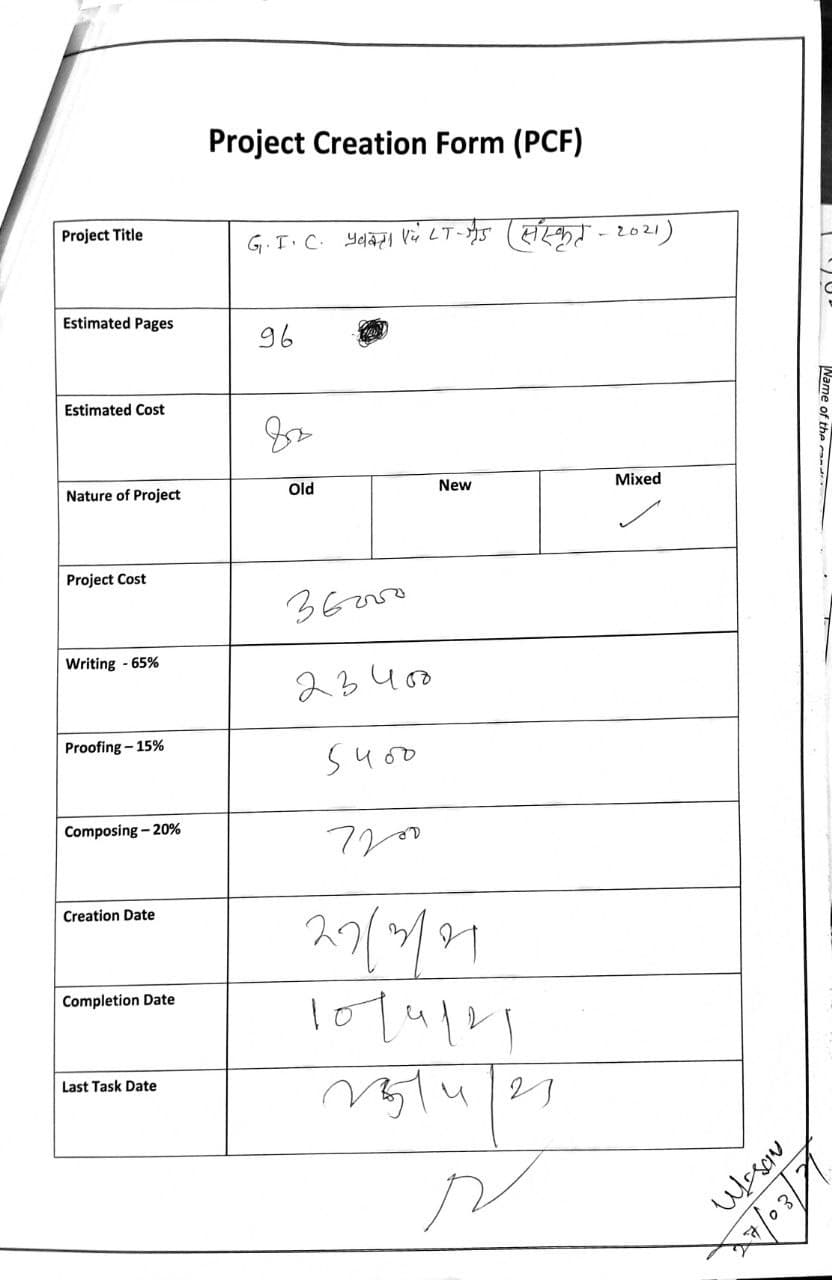 Project Creation Form (PCF)
Project Title
G.I.C. प्रवक्ता एवं LT-ग्रेड (संस्कृत - 2021)
Estimated Pages
96
Estimated Cost
800
Nature of Project
Old New Mixed
✓
Project Cost
36000
Writing - 65%
23400
Proofing – 15%
5400
Composing – 20%
7200
Creation Date
27/3/21
Completion Date
10/4/21
Last Task Date
25/4/21
27/03/21
Name of the